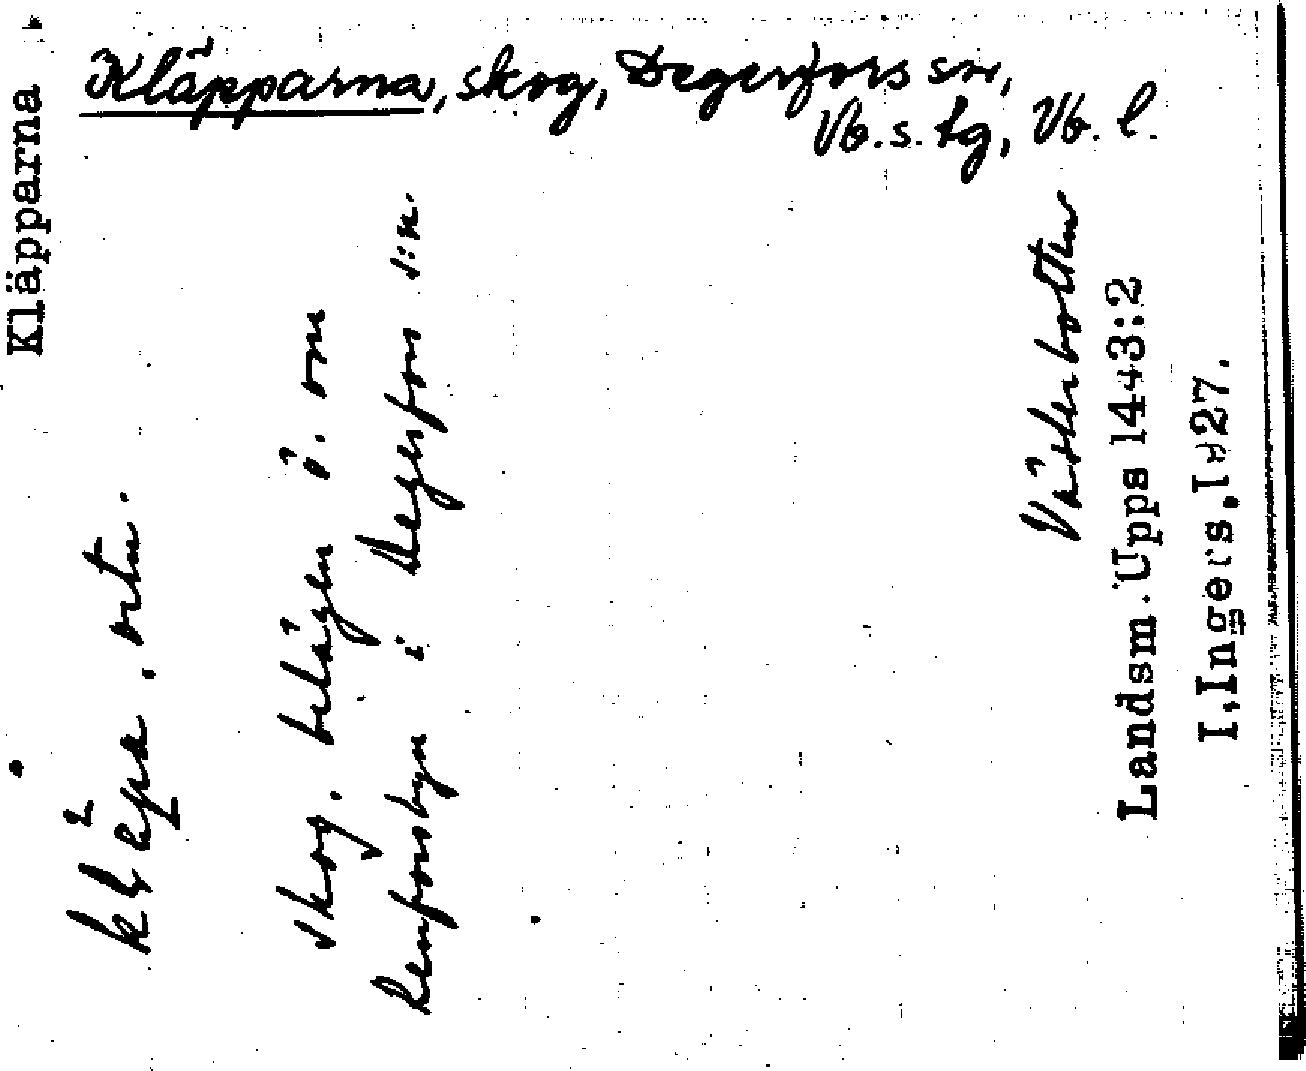 Kläpparna
Kläpparna, skog, Degerfors sn,
Vb. s. tg, Vb. l.
skog. belägen ö. om
i Degerfors s:n.
Västerbotten
Landsm. Upps 1443:2
I. Ingers, 1927.